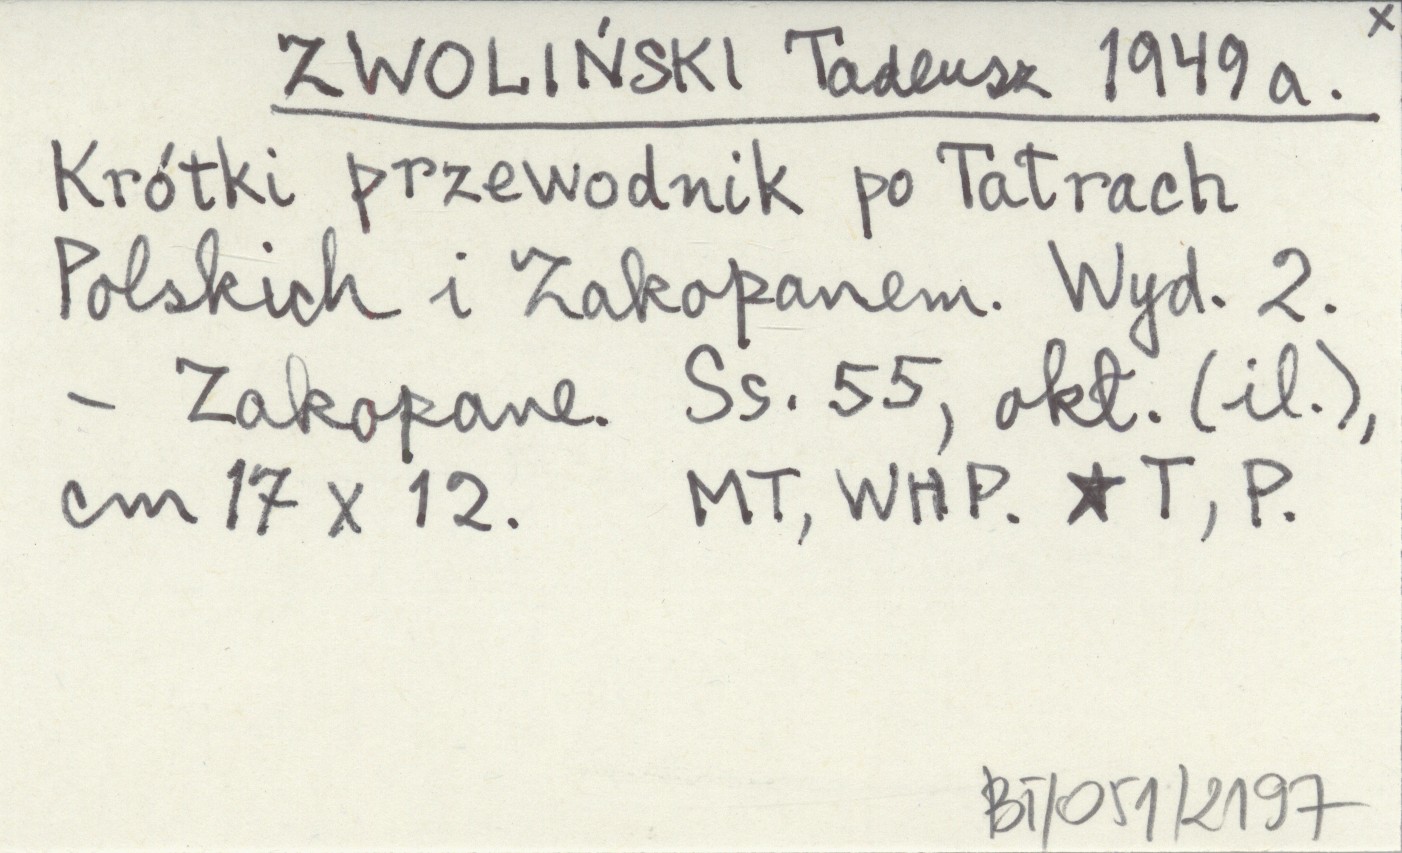 x
ZWOLIŃSKI Tadeusz 1949a.
Krótki przewodnik po Tatrach
Polskich i Zakopanem. Wyd. 2.
- Zakopane. Ss. 55, okł. (il.),
cm 17 x 12. MT, WHP. ★ T, P.
BT/051/2197